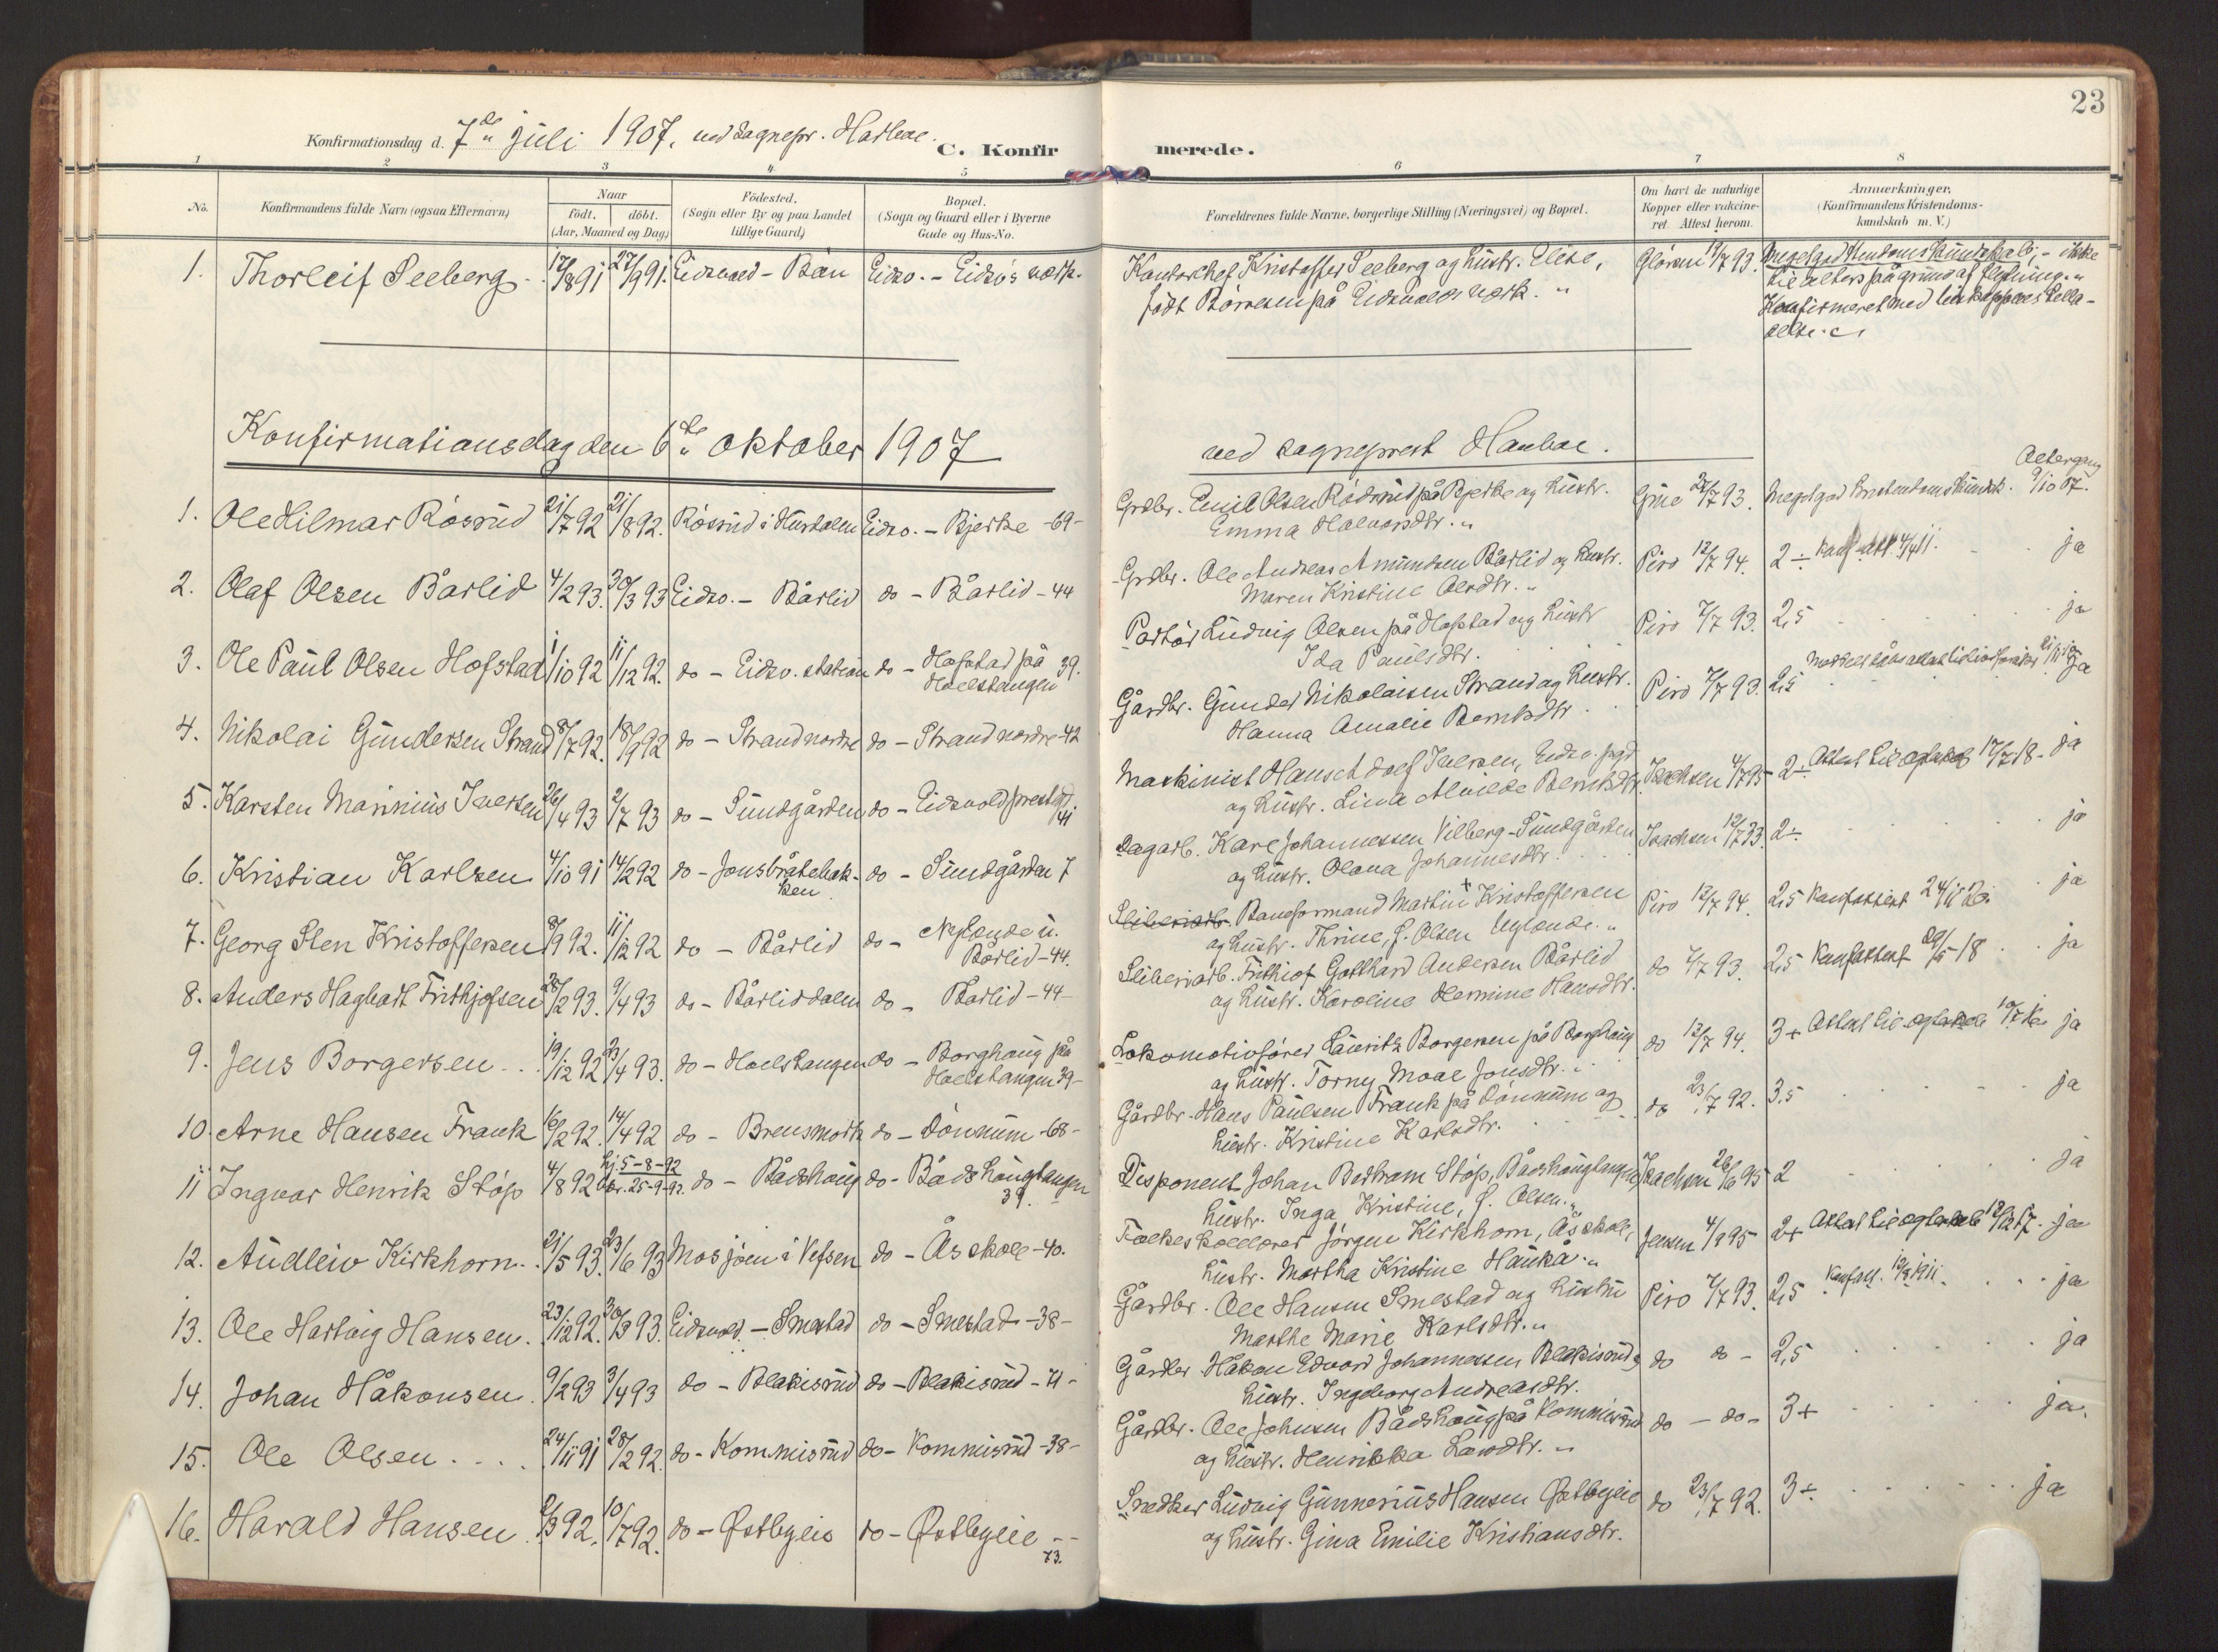 23
Konfirmationsdag d. 7de juli 1907, ved sognepr.
C. Konfirmerede.
1 2 3 4 5 6 7 8
No.
Konfirmandens fulde Navn (ogsaa Efternavn)
Naar
födt. döbt.
(Aar, Maaned og Dag)
Födested.
(Sogn eller By og paa Landet
tillige Gaard)
Bopæl.
(Sogn og Gaard eller i Byerne
Gade og Hus-No.
Forældrenes fulde Navne, borgerlige Stilling (Næringsvei) og Bopæl.
Om havt de naturlige
Kopper eller vaccine-
ret Attest herom.
Anmærkninger.
(Konfirmandens Kristendoms-
kundskab m. V.)
1. Thorleif Seeberg 17/8 91 27/9 91. Eidsvold - Bøn Eidsv. - Eidsv's værk.
Kontorchef Kristoffer Seeberg og hustr. Elise, 19/7 93. Meget god - ikke
født Børresen på Eidsvolds værk. til alters på grund af flytning
Konfirmeret med
Konfirmationsdag den 6te oktober 1907
ved sogneprest
Altergang
1. Ole Hilmar Rôsrud 21/7 92 21/8 92. Rôsrud i Hurdalen Eidsv. - Bjerke -69-
Grdbr. Emil Olsen på Bjerke og hustr. 93. Meget god kristendomskundsk. 9/10 07.
Emma Halvorsdtr.
2. Olaf Olsen Bårlid 4/2 93. 30/3 93 Eidsv. - Bårlid do - Bårlid - 44
Grdbr. Ole Andreas Amundsen Bårlid og hustr. Piro 12/7 94. 2÷ ja
Maren Kristine Olsdtr.
3. Ole Paul Olsen Hofstad 1/10 92 11/12 92. do - Eidsv. station do - Hofstad på 39.
Hoelstangen
Portôr Ludvig Olsen på Hofstad og hustr. Piro 7/7 93. 2,5 ja
Ida Paulsdtr.
4. Nikolai Gundersen Strand 8/7 92. 18/9 92 do - Strand nordre do - Strand nordre - 42
Gårdbr. Gunder Nikolaisen Strand og hustr. Piro 7/7 93. 2,5 ja
Hanna Amalie Berntsdtr.
5. Karsten Marinius Iversen 26/4 93 2/7 93 do - Sundgården do - Eidsvold prestgd. 41
Maskinist Hans Adolf Iversen, Eidsv. pgd. Isachsen 4/7 95 2÷ Attest til 17/7 18. ja
og hustr. Lina Alvilde Berntsdtr.
6. Kristian Karlsen 4/10 91 14/2 92 do - Jonsbråtebak- do - Sundgården 7
ken
Dagarb. Karl Johannessen Vilberg-Sundgården Isachsen 12/7 93. 2÷ ja
og hustr. Olava Johannesdtr.
7. Georg Sten Kristoffersen 8/9 92. 11/12 92 do - Bårlid do - Nylende u.
Bårlid - 44.
Sliberiarb. Baneformand Martin Kristoffersen Piro 12/7 94. 2,5 Konfattest ja
og hustr. Thrine, f. Olsen Nylende.
8. Anders Hagbart Frithjofsen 28/2 93. 9/4 93 do - Bårliddalen do - Bårlid - 44
Sliberiarb. Frithiof Gotthard Andersen Bårlid do 7/7 93. 2,5 Konfattest 29/5 - 18 ja
og hustr. Karoline Hermine Hansdtr.
9. Jens Borgersen 19/12 92 23/4 93. do - Hoelstangen do - Borghaug på
Hoelstangen 39 -
Lokomotivfôrer Lauritz Borgersen på Borghaug do 12/7 94. 3+ Attest til ja
og hustr. Torny Moae Jonsdtr.
10. Arne Hansen Frank 16/2 92. 14/4 92 do - Brensmork do - Dônnum - 68 -
Gårdbr. Hans Paulsen Frank på Dônnum og do 23/7 92. 3,5 ja
hustr. Kristine Karlsdtr.
11 Ingvar Henrik Stôp 4/8 92 hj. 5-8-92 kr. 25-9-92. do - Bådshaug do - Bådshaugtangen
39.
Disponent Johan Bertram Stôp, Bådshaugtangen, Isachsen 26/6 95 2 ja
hustr. Inga Kristine, f. Olsen.
12. Audleiv Kirkhorn 21/5 93. 23/6 93 Mosjôen i Vefsen do - Ås skole - 40.
Folkeskolelærer Jørgen Kirkhorn, Ås skole, Jensen 4/9 95 2+ Attest til 12/12 17. ja
hustr. Martha Kristine Haukå.
13. Ole Hartvig Hansen. 23/12 92. 30/3 93. Eidsvold - Smestad do - Smestad - 38 -
Gårdbr. Ole Hansen Smestad og hustru Piro 7/7 93. 2,5 Konfatt. 1911. ja
Marthe Marie Karlsdtr.
14. Johan Håkonsen. 9/2 93 3/4 93 do - Blakisrud do - Blakisrud - 71 -
Gårdbr. Håkon Edvard Johannessen Blakisrud og do do - 2,5 ja
hustr. Ingeborg Andreasdtr.
15. Ole Olsen 24/11 91 28/2 92. do - Kommisrud do - Kommisrud - 38 -
Gårdbr. Ole Johnsen Bådshaug på Kommisrud do - do - 3+ ja.
og hustr. Henrikka Larsdtr.
16. Harald Hansen 2/3 92. 10/7 92. do - Østbyeie do - Østbyeie
73.
Snedker Ludvig Gunnerius Hansen Østbyeie do 23/7 92. 3÷ ja
og hustr. Gina Emilie Kristiansdtr.